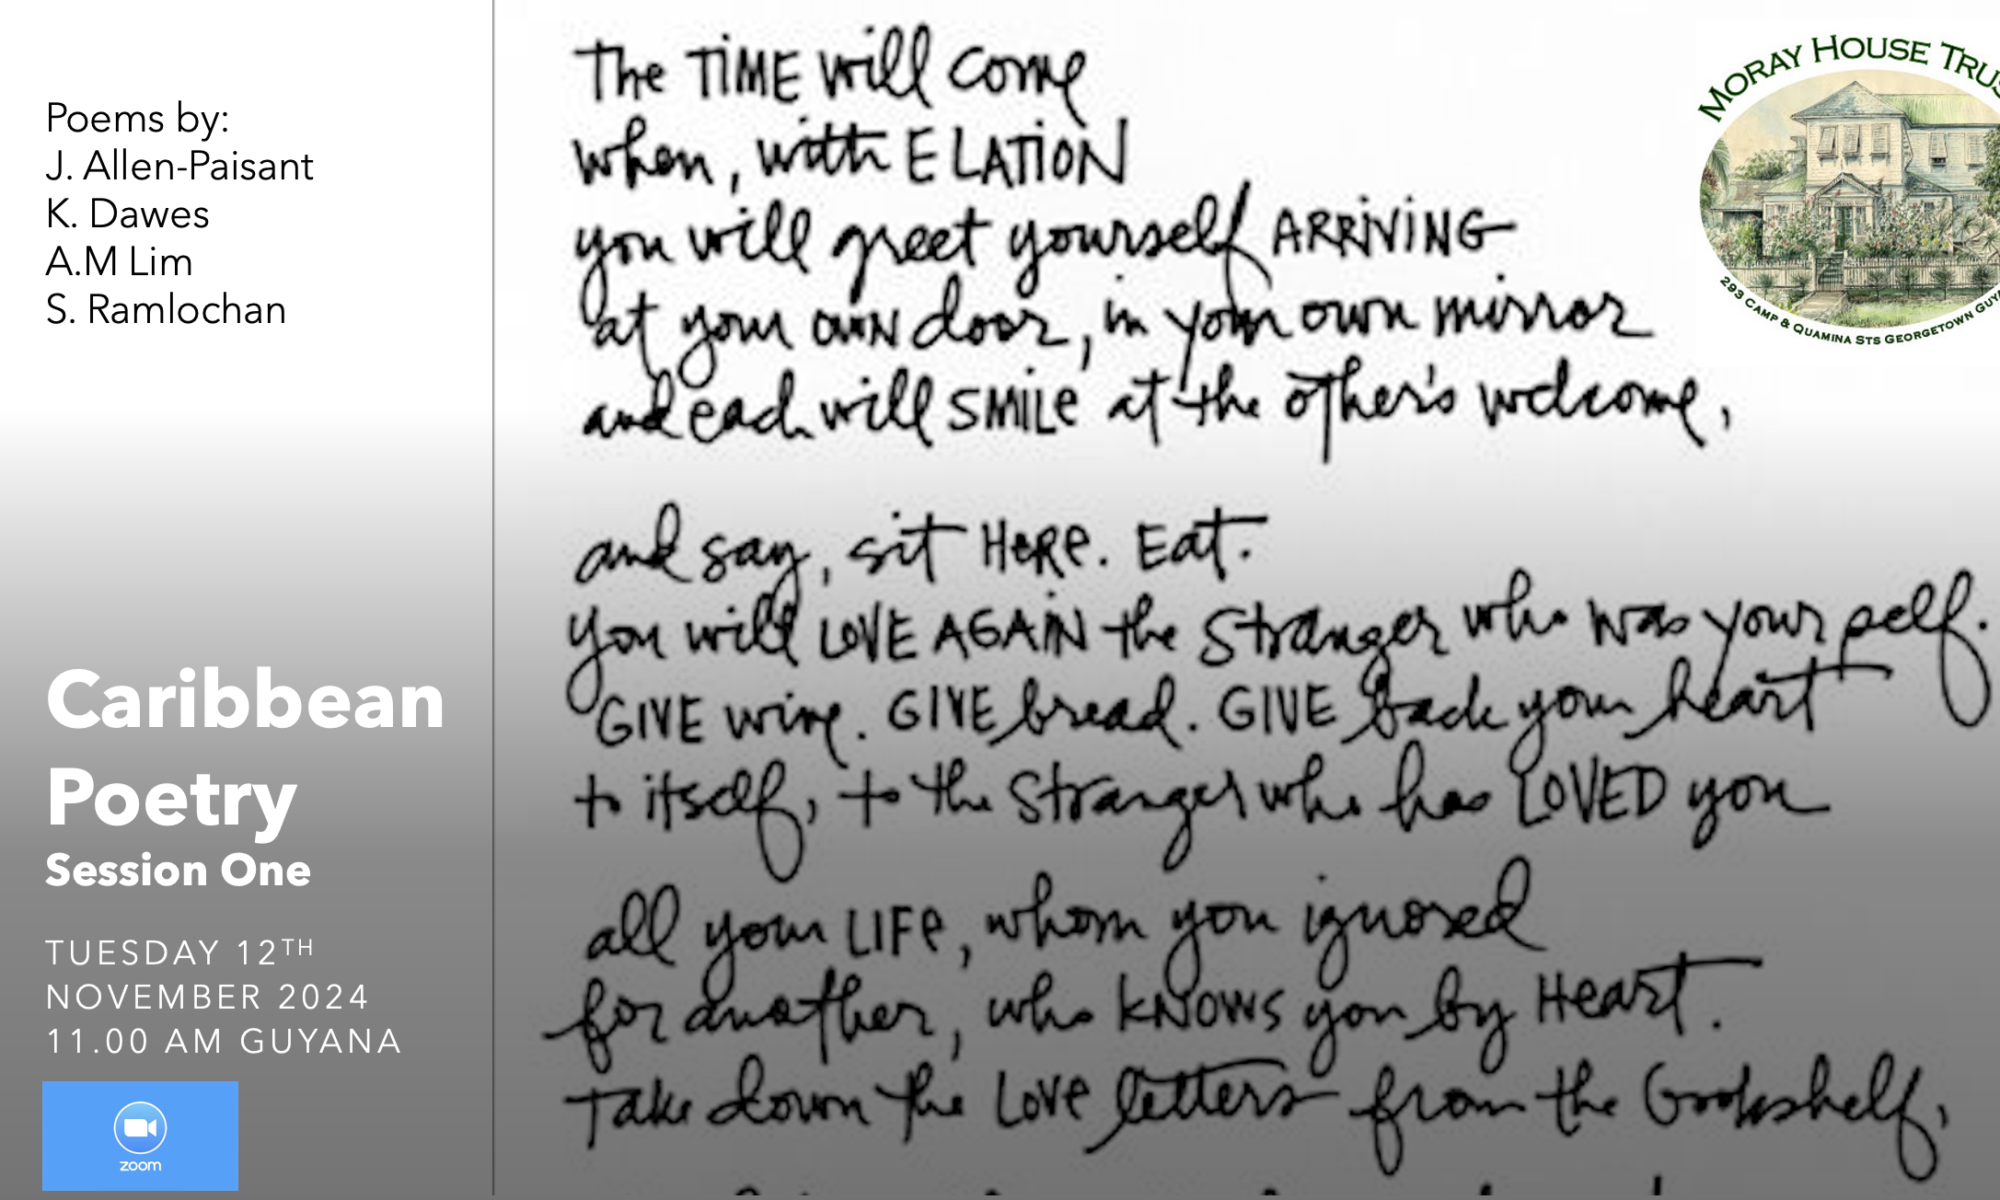 Poems by:
J. Allen-Paisant
K. Dawes
A.M Lim
S. Ramlochan
Caribbean
Poetry
Session One
TUESDAY 12TH
NOVEMBER 2024
11.00 AM GUYANA
zoom
The TIME will come
when, with ELATION
you will greet yourself ARRIVING
at your own door, in your own mirror
and each will SMILE at the other's welcome,
and say, sit HERE. Eat.
You will LOVE AGAIN the Stranger who was your self.
GIVE wine. GIVE bread. GIVE back your heart
to itself, to the Stranger who has LOVED you
all your LIFE, whom you ignored
for another, who KNOWS you by Heart.
Take down the Love letters from the bookshelf,
MORAY HOUSE TRUS
293 CAMP & QUAMINA STS GEORGETOWN GUY